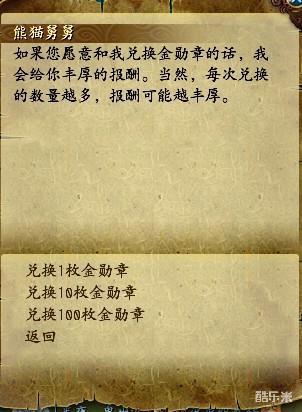 熊猫舅舅
如果您愿意和我兑换金勋章的话，我
会给你丰厚的报酬。当然，每次兑换
的数量越多，报酬可能越丰厚。
兑换1枚金勋章
兑换10枚金勋章
兑换100枚金勋章
返回
酷乐米